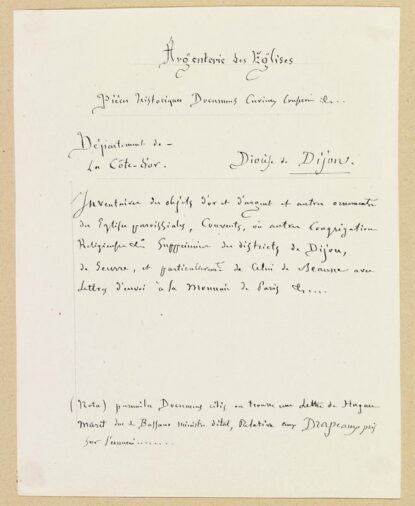 Argenterie des Eglises
Pièces historiques Documens Curieux &c...
Département de —
La Côte-d'or. Diocèse de Dijon.
Inventaires des objets d'or et d'argent et autres ornements
des Eglises paroissiales, Couvents, où autres Congrégations
Religieuses &c Supprimées des districts de Dijon,
de Seurre, et particulièrem.t de Celui de Beaune avec
Lettres d'envoi à la Monnaie de Paris &c....
(Nota) parmi les Documens cités on trouve une Lettre de Hugues
Maret duc de Bassano ministre d'état, Relative aux Drapeaux pris
Sur l'ennemi........